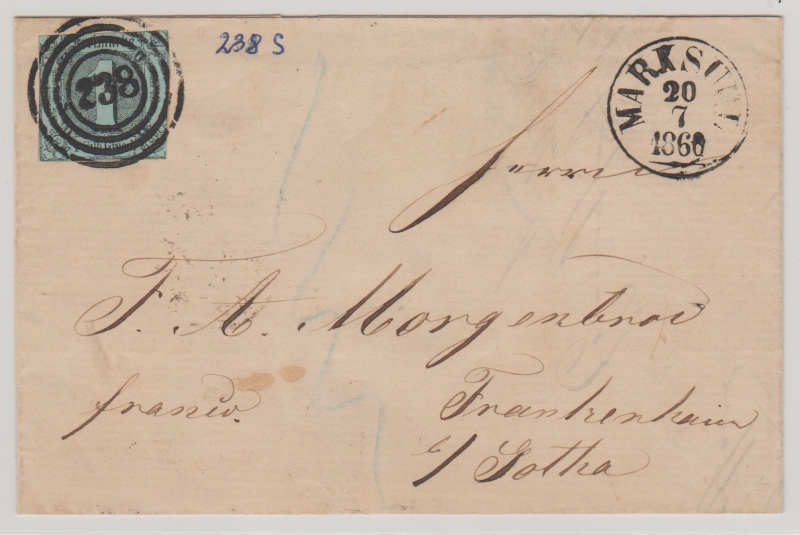 238
1
238 S
MARKSUHL
20
7
1860
Herrn
F. A. Morgenbrod
franco.
Frankenhain
b/ Gotha